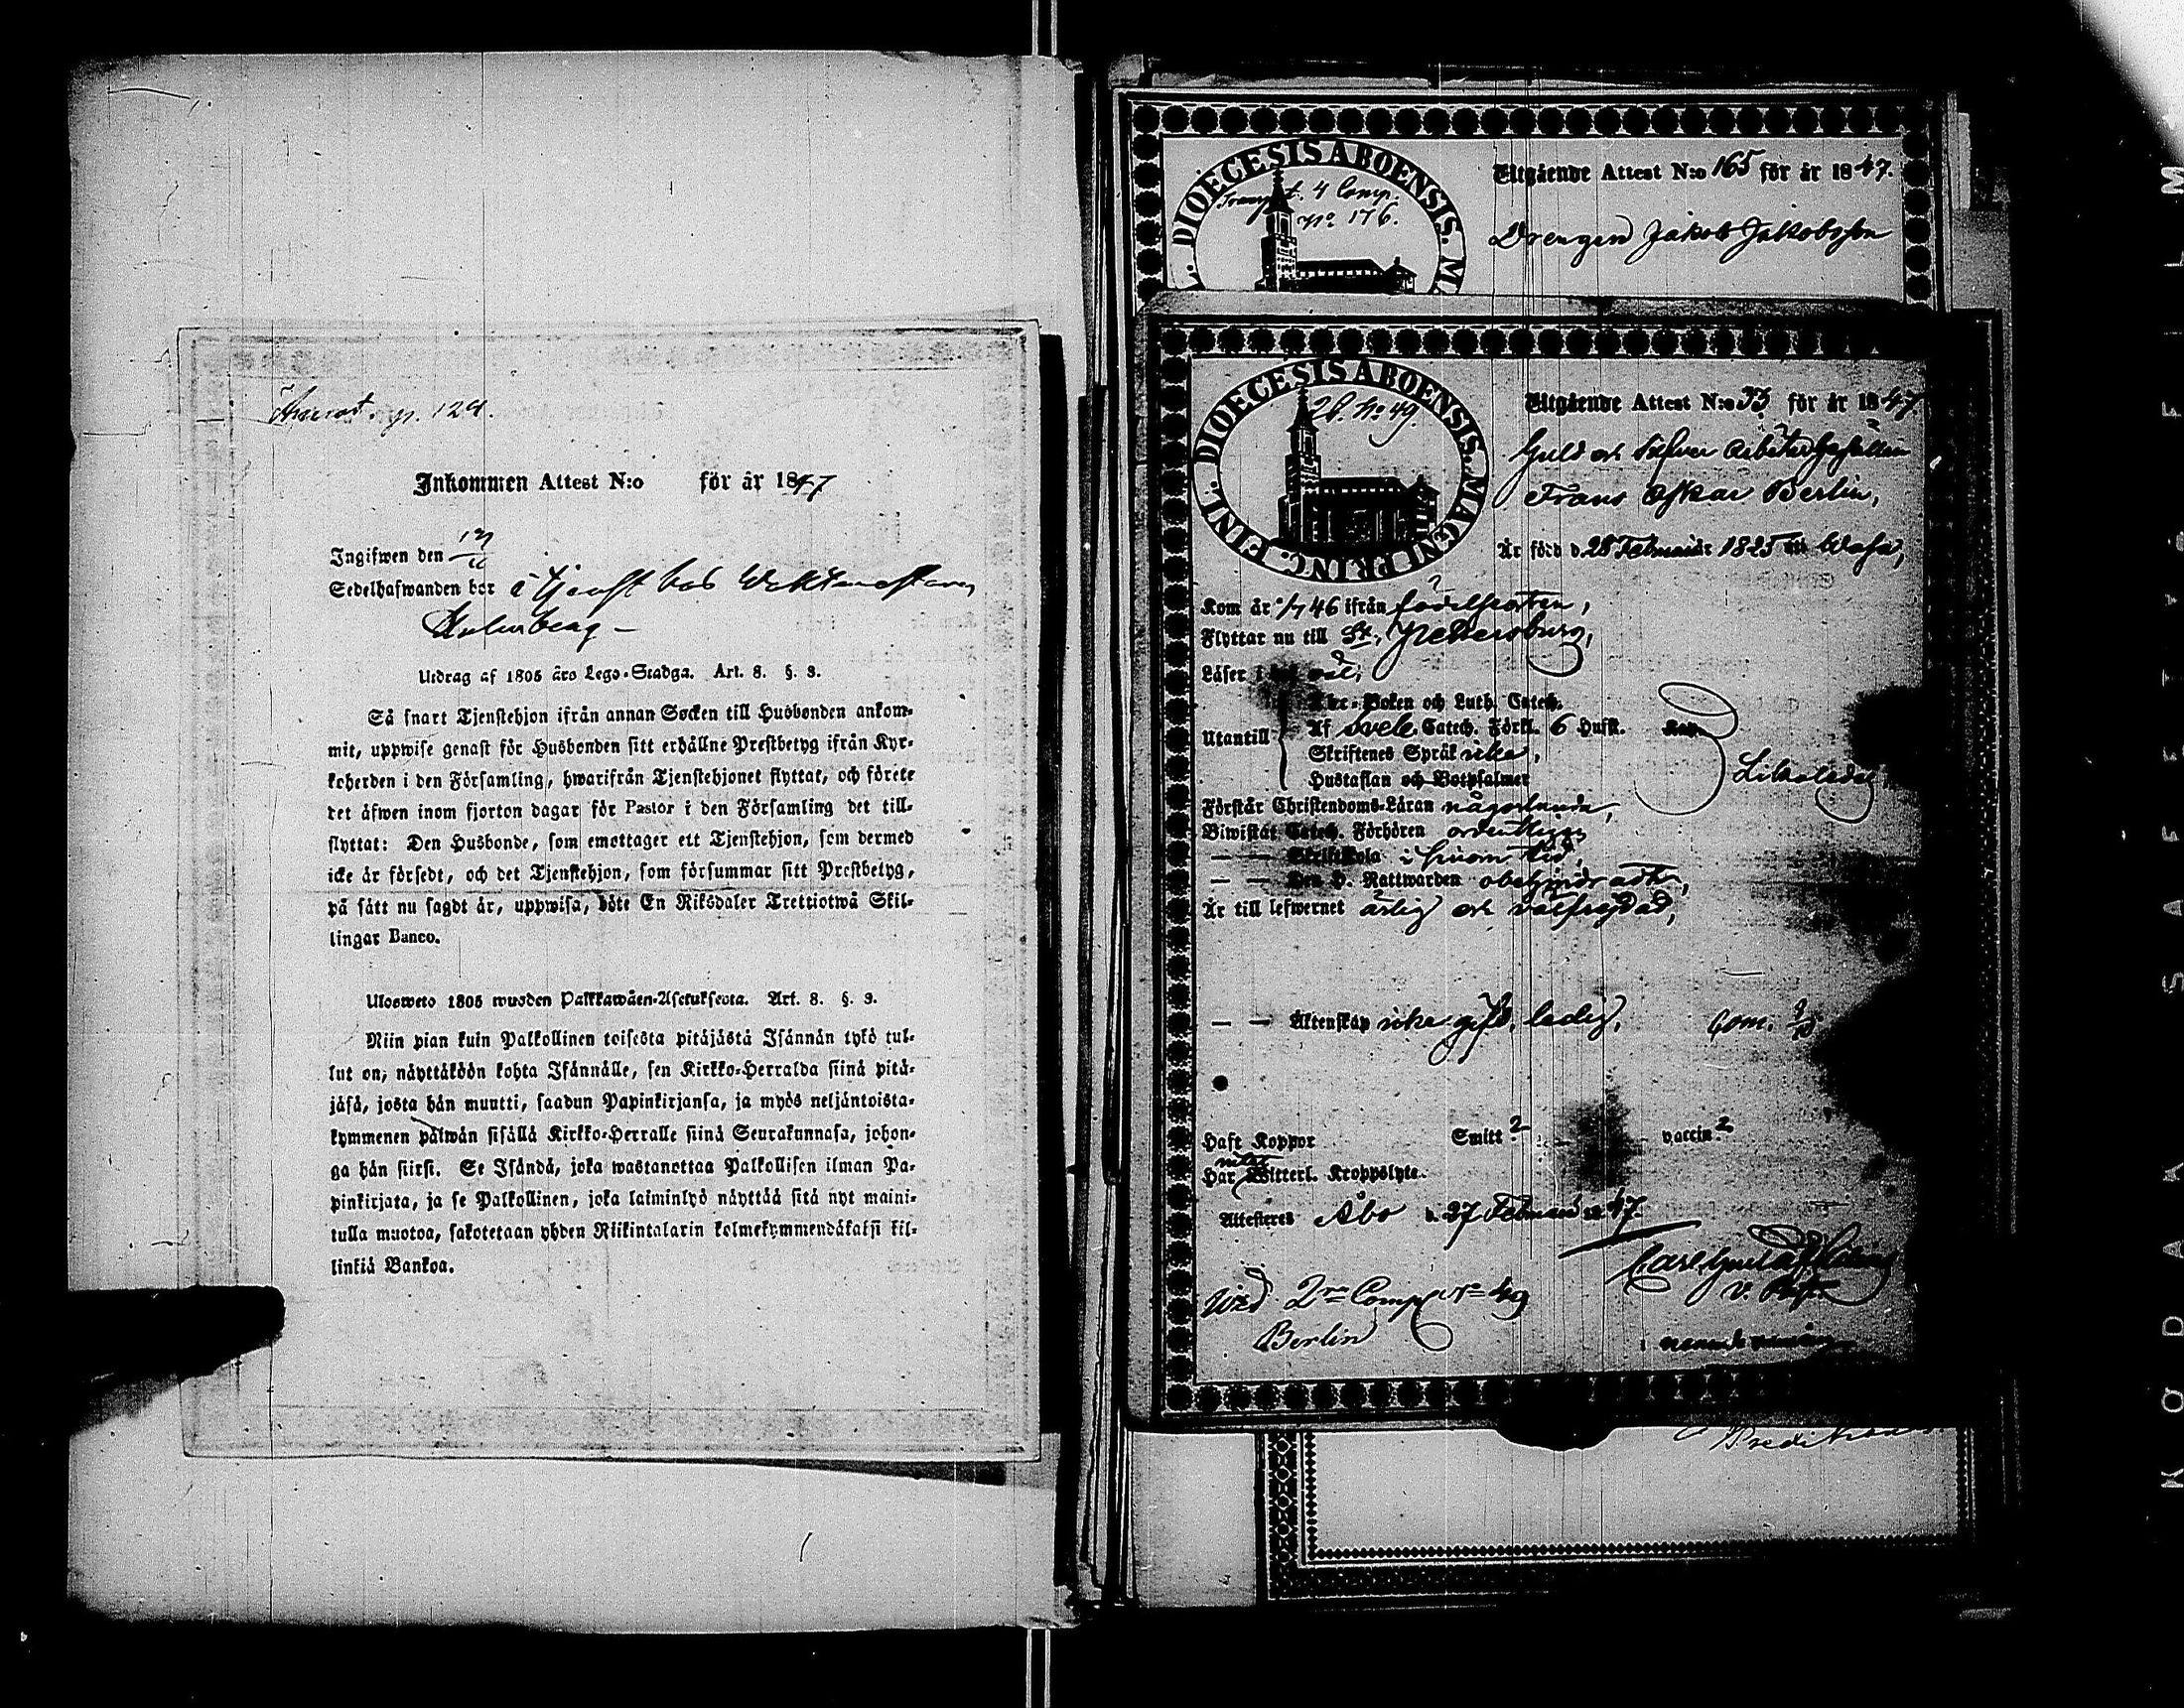 p. 124.
Inkommen Attest N:o för år 1847
Ingifwen den
Sedelhafwanden bor i tjenst hos
Utdrag af 1805 års Lego-Stadga. Art. 8. §. 3.
Så snart Tjenstehjon ifrån annan Socken till Husbonden ankom-
mit, uppwise genast för Husbonden sitt erhållne Prestbetyg ifrån Kyr-
koherden i den Församling, hwarifrån Tjenstehjonet flyttat, och förete
det äfwen inom fjorton dagar för Pastor i den Församling det till-
flyttat: Den Husbonde, som emottager ett Tjenstehjon, som dermed
icke är försedt, och det Tjenstehjon, som försummar sitt Prestbetyg,
på sätt nu sagdt är, uppwisa, böte En Riksdaler Trettiotwå Skil-
lingar Banco.
Ulosweto 1805 wuoden Palkkawäen-Asetuksesta. Art. 8. §. 3.
Niin pian kuin Palkollinen toisesta pitäjästä Isännän tykö tul-
lut on, näyttäköön kohta Isännälle, sen Kirkko-Herralda siinä pitä-
jäsä, josta hän muutti, saadun Papinkirjansa, ja myös neljäntoista-
kymmenen päiwän sisällä Kirkko-Herralle siinä Seurakunnasa, johon-
ga hän siirsi. Se Isändä, joka wastanottaa Palkollisen ilman Pa-
pinkirjata, ja se Palkollinen, joka laiminlyö näyttää sitä nyt maini-
tulla muotoa, sakotetaan yhden Riikintalarin kolmekymmendäkaksi kil-
linkiä Bankoa.
DIOECESIS ABOENSIS. MA
4 Comp.
No 176.
Utgående Attest N:o 165 för år 1847.
Drengen Jakob Jakobsson
DIOECESIS ABOENSIS. MAGNI PRINC. FINL.
2b. No 49.
Utgående Attest N:o 53 för år 1847
Guld och Silfver Arbetar Gesällen
Frans Oskar Berlin,
Är född d. 28 Februarii 1825 i Wasa,
Kom år 46 ifrån födelseorten,
Flyttar nu till St. Petersburg,
Läser i bok väl,
Abc-Boken och Luth. Catech.
Utantill Af Sveb. Catech. Förkl. 6 Hufst.
Skriftenes Språk icke,
Hustaflan och Botpsalmer
Förstår Christendoms-Läran någorlunda,
Biwistat Catech. Förhören ordentligen
— — Skriftskola i sinom tid,
— — Den H. Nattwarden obehindrad
Är till lefwernet ärlig och välfrejdad,
— — Äktenskap icke gift, ledig.
Haft Koppor Smitt ? vaccin ?
intet
Har Witterl. Kroppslyte.
Attesteres Åbo d. 27 Februarii 1847.
Carl Gustaf
v. Past.
Wid 2ra Comp No 49
Berlin
KODAK SAFETY FILM